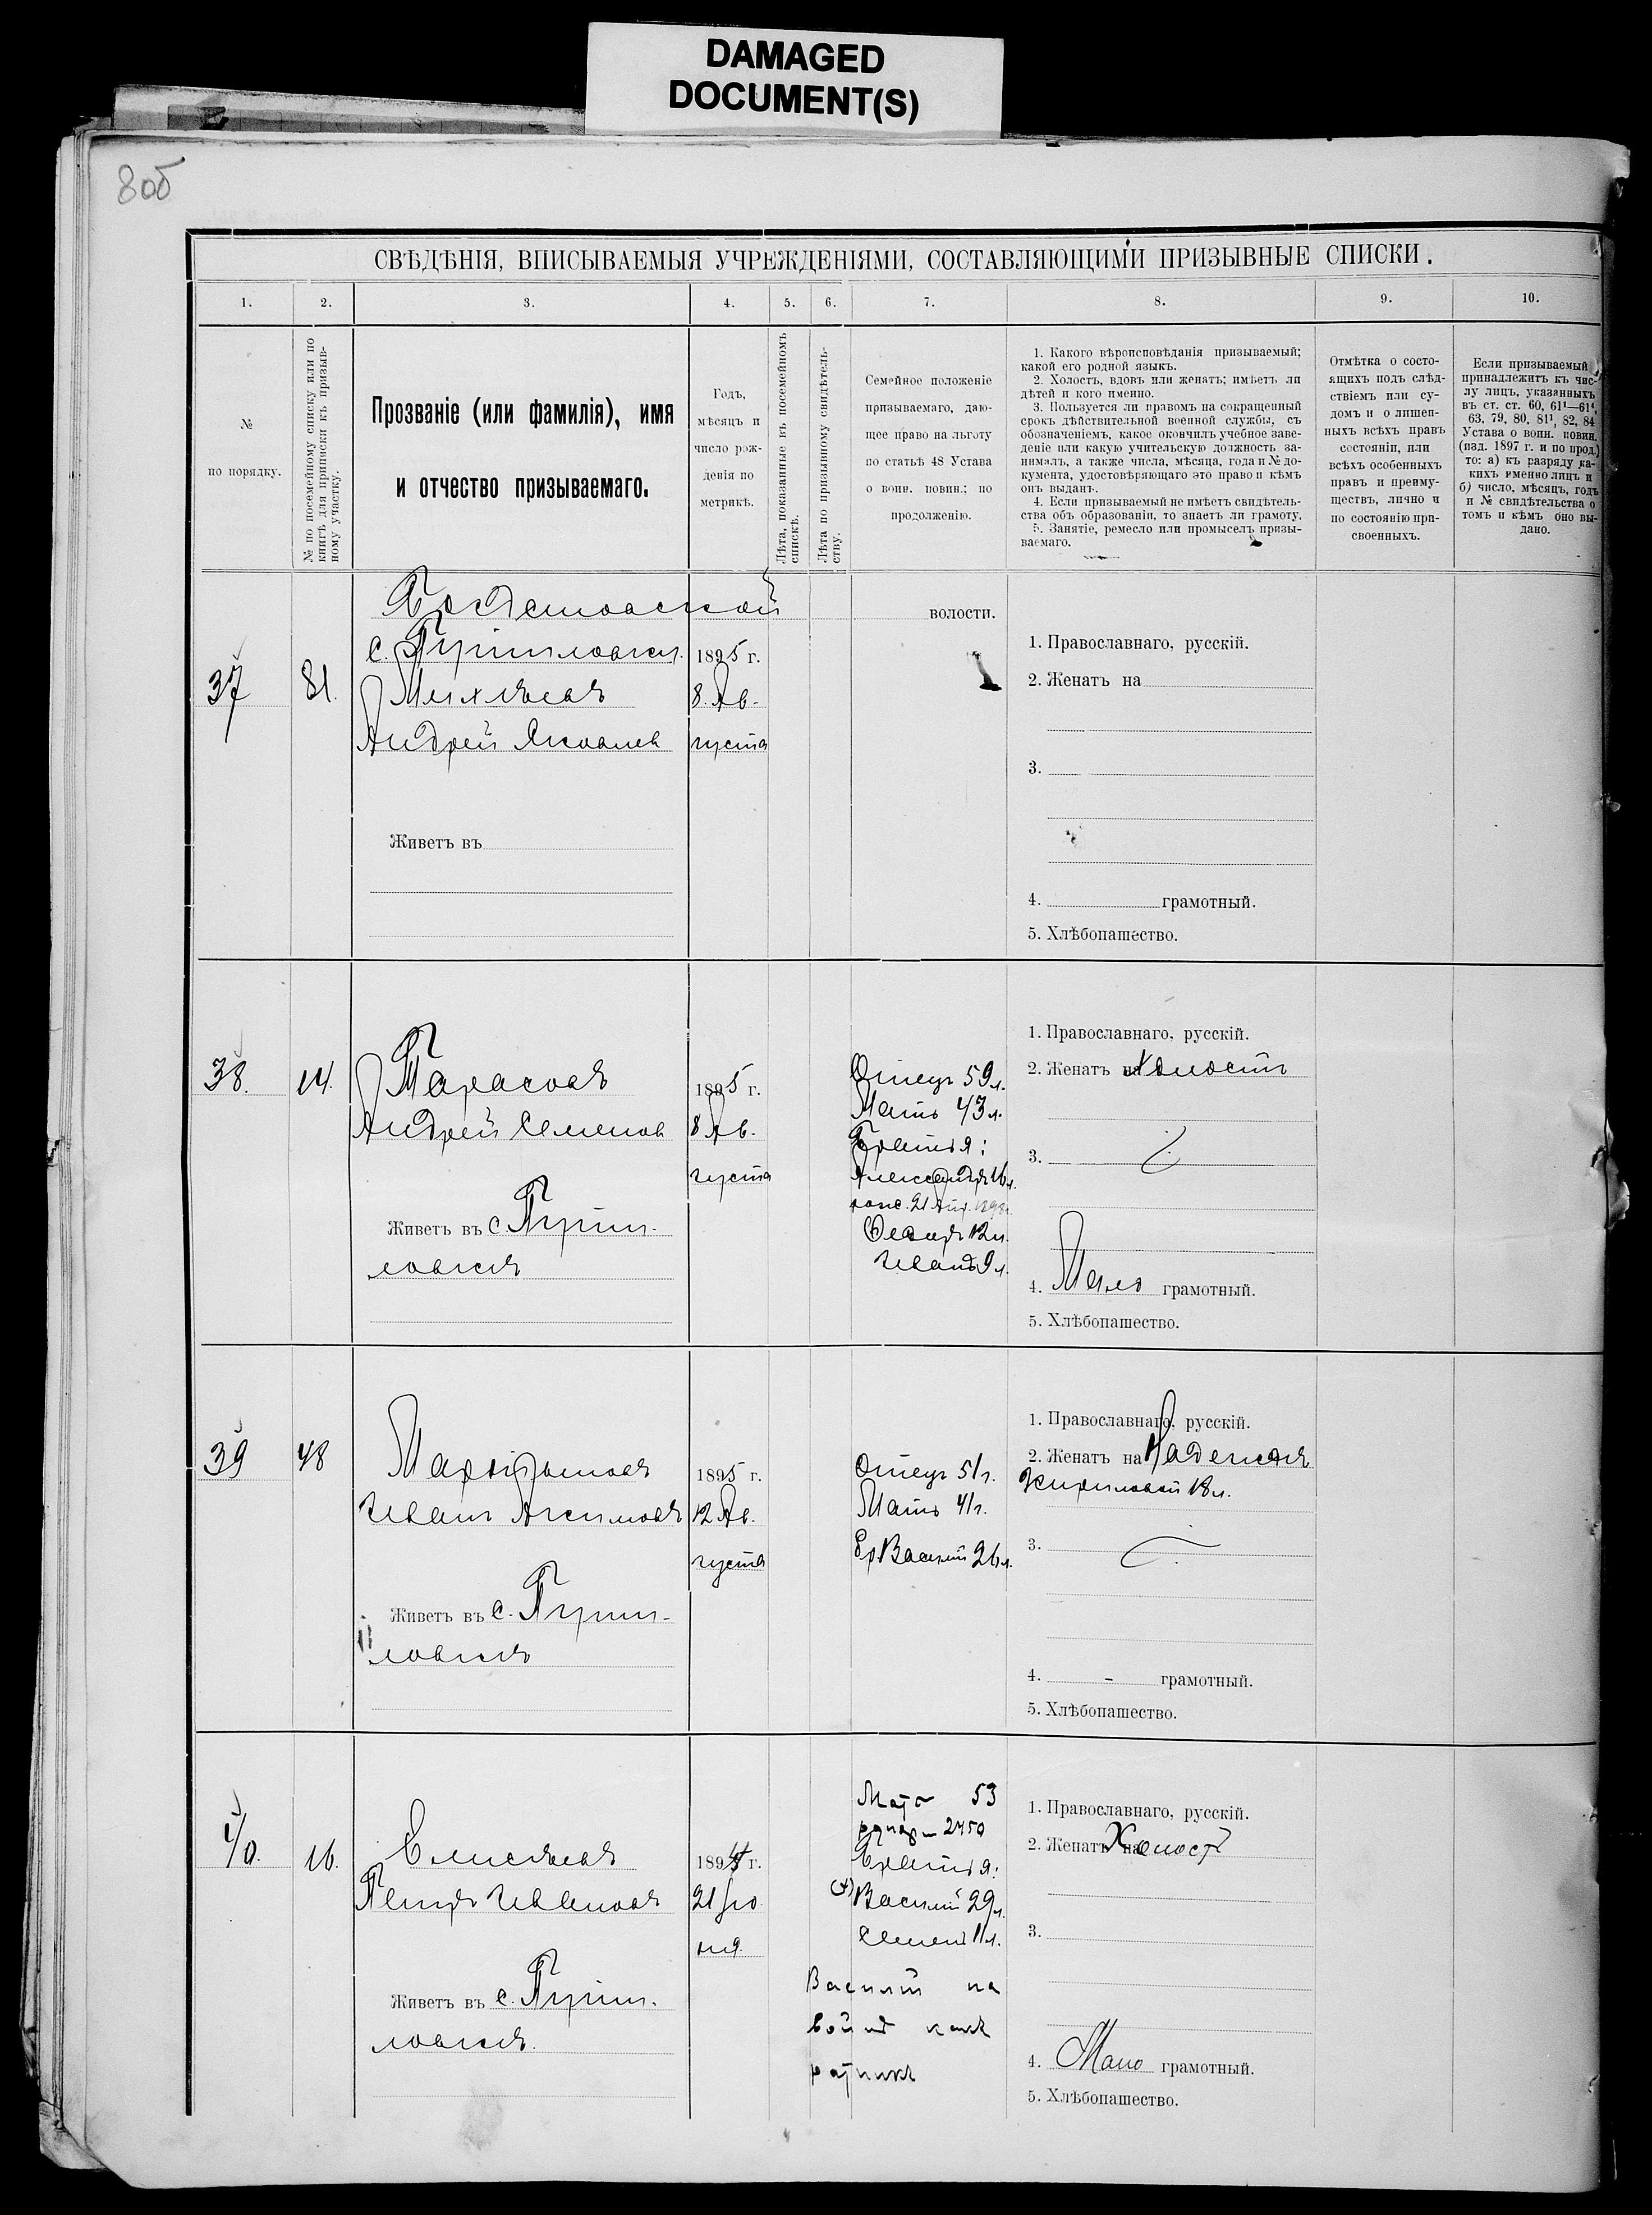 DAMAGED
DOCUMENT(S)
80б
СВѢДѢНІЯ, ВПИСЫВАЕМЫЯ УЧРЕЖДЕНІЯМИ, СОСТАВЛЯЮЩИМИ ПРИЗЫВНЫЕ СПИСКИ.
1. 2. 3. 4. 5. 6. 7. 8. 9. 10.
№
по порядку.
№ по посемейному списку или по
книгѣ для приписки къ призыв-
ному участку.
Прозваніе (или фамилія), имя
и отчество призываемаго.
Годъ,
мѣсяцъ и
число рож-
денія по
метрикѣ.
Лѣта, показанные въ посемейномъ
спискѣ.
Лѣта по призывному свидѣтель-
ству.
Семейное положеніе
призываемаго, даю-
щее право на льготу
по статьѣ 48 Устава
о воин. повин.; по
продолженію.
1. Какого вѣроисповѣданія призываемый;
какой его родной языкъ.
2. Холостъ, вдовъ или женатъ; имѣетъ ли
дѣтей и кого именно.
3. Пользуется ли правомъ на сокращенный
срокъ дѣйствительной военной службы, съ
обозначеніемъ, какое окончилъ учебное заве-
деніе или какую учительскую должность за-
нималъ, а также числа, мѣсяца, года и № до-
кумента, удостовѣряющаго это право и кѣмъ
онъ выданъ.
4. Если призываемый не имѣетъ свидѣтель-
ства объ образованіи, то знаетъ ли грамоту.
5. Занятіе, ремесло или промыселъ призы-
ваемаго.
Отмѣтка о состо-
ящихъ подъ слѣд-
ствіемъ или су-
домъ и о лишен-
ныхъ всѣхъ правъ
состоянія, или
всѣхъ особенныхъ
правъ и преиму-
ществъ, лично и
по состоянію при-
своенныхъ.
Если призываемый
принадлежитъ къ чис-
лу лицъ, указанныхъ
въ ст. ст. 60, 61¹—61⁴,
63, 79, 80, 81¹, 82, 84
Устава о воин. повин.
(изд. 1897 г. и по прод.)
то: а) къ разряду ка-
кихъ именно лицъ и
б) число, мѣсяцъ, годъ
и № свидѣтельства о
томъ и кѣмъ оно вы-
дано.
волости.
37 81.
1895 г.
8. Ав-
густа
Андрей Яковлев
Живетъ въ
1. Православнаго, русскій.
2. Женатъ на
3.
4. грамотный.
5. Хлѣбопашество.
38. 14.
Тарасовъ
Андрей Семенов
1895 г.
8 Ав-
густа
Живетъ въ с.
Отецъ 59 л.
Мать 43 л.
Братья:
Александръ 16 л.
Ѳедоръ 12 л.
Иванъ 9 л.
1. Православнаго, русскій.
2. Женатъ на Холостъ
3.
4. Мало грамотный.
5. Хлѣбопашество.
39 48
Мартыновъ
Иванъ
1895 г.
12 Ав-
густа
Живетъ въ с.
Отецъ 51 г.
Мать 41 г.
Бр Василій 26 л.
1. Православнаго, русскій.
2. Женатъ на
18 л.
3.
4. - грамотный.
5. Хлѣбопашество.
40. 16.
Елисѣевъ
Петръ Ивановъ
1894 г.
21 Ію-
ня
Живетъ въ с.
Мать 53
Братья:
Василій 29 л.
Семенъ 11 л.
Василій на
войнѣ какъ
ратникъ
1. Православнаго, русскій.
2. Женатъ на Холостъ
3.
4. Мало грамотный.
5. Хлѣбопашество.